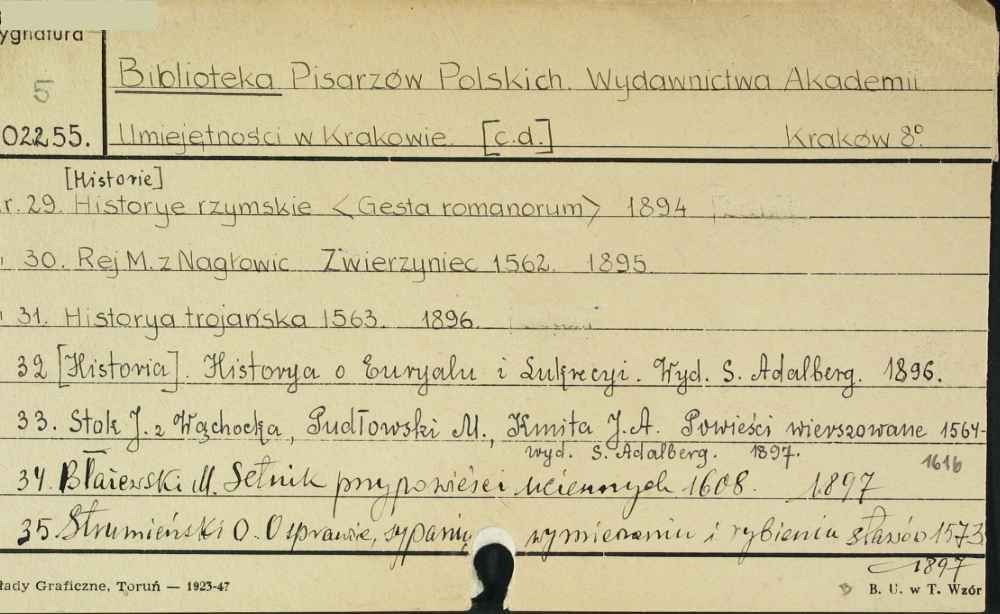 ygnatura
5
02255.
Biblioteka Pisarzów Polskich. Wydawnictwa Akademii
Umiejętności w Krakowie. [c.d.] Kraków 8°.
[Historie]
r. 29. Historye rzymskie <Gesta romanorum> 1894
30. Rej M. z Nagłowic Zwierzyniec 1562. 1895.
31. Historya trojańska 1563. 1896.
32 [Historia]. Historya o Euryalu i Lukrecyi. Wyd. S. Adalberg. 1896.
33. Stok J. z Wąchocka, Pudłowski M., Kmita J. A. Powieści wierszowane 1564-
wyd. S. Adalberg. 1897. 1616
34. Błażewski M. Setnik przypowieści uciesznych 1608. 1897
35 Strumieński O. O sprawie, sypaniu wymierzaniu i rybieniu stawów 1573
1897
łady Graficzne, Toruń — 1923-47
B. U. w T. Wzór